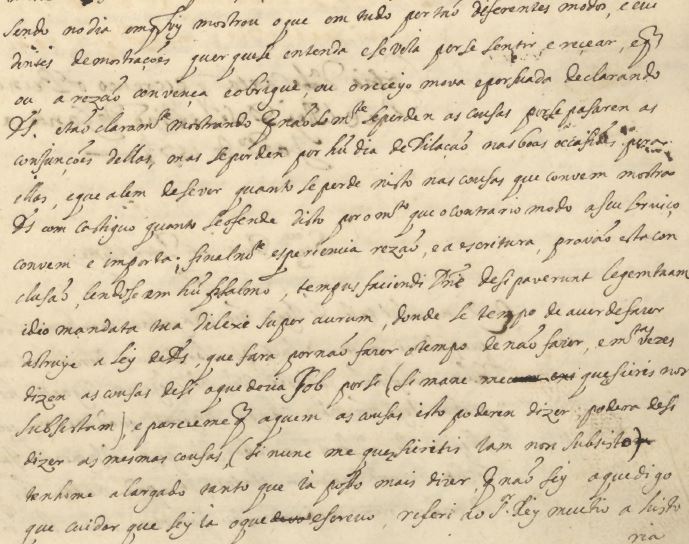 sendo no dia em q̃ foy mostrou o que em tudo por tão diferentes modos, e
demostrações quer que se entenda e se vela por se sentir, e recear, e q̃
ou a rezão convença e obrigue, ou o receyo mova e persuada declarando
Ds. e tão claramte mostrando q̃ não somte se perden as cousas por se pasaren as
conjunções dellas, mas se perden por hũ dia de dilação nas boas occasiões pera
ellas, e que alem de se ver quanto se perde nisto nas cousas que convem mostra
Ds com castiguo quanto se ofende disto por o mto que o contrario modo a seu serviço
convem e importa; finalmte esperiencia rezão, e a escritura, provão esta con
clusão, lendose em hũ psalmo, tempus faciendi Dñe desipaverunt legem tuam
ideo mandata tua dilexi super aurum, donde se tempo de aver de fazer
destruye a ley de Ds, que fara por não fazer o tempo de não fazer, e mtas vezes
dizen as cousas de si o que dezia Job por si (si mane me quesieris non
subsistam) e pareceme q̃ a quem as cousas isto poderen dizer, podera de si
dizer as mesmas cousas, (si nunc me quesieritis iam non subsisto)
tenhome alargado tanto que ia posso mais dizer q̃ não sey o que digo
que cuidar que sey ia o que escrevo, referi ao Sr. Rey muito a histo
ria